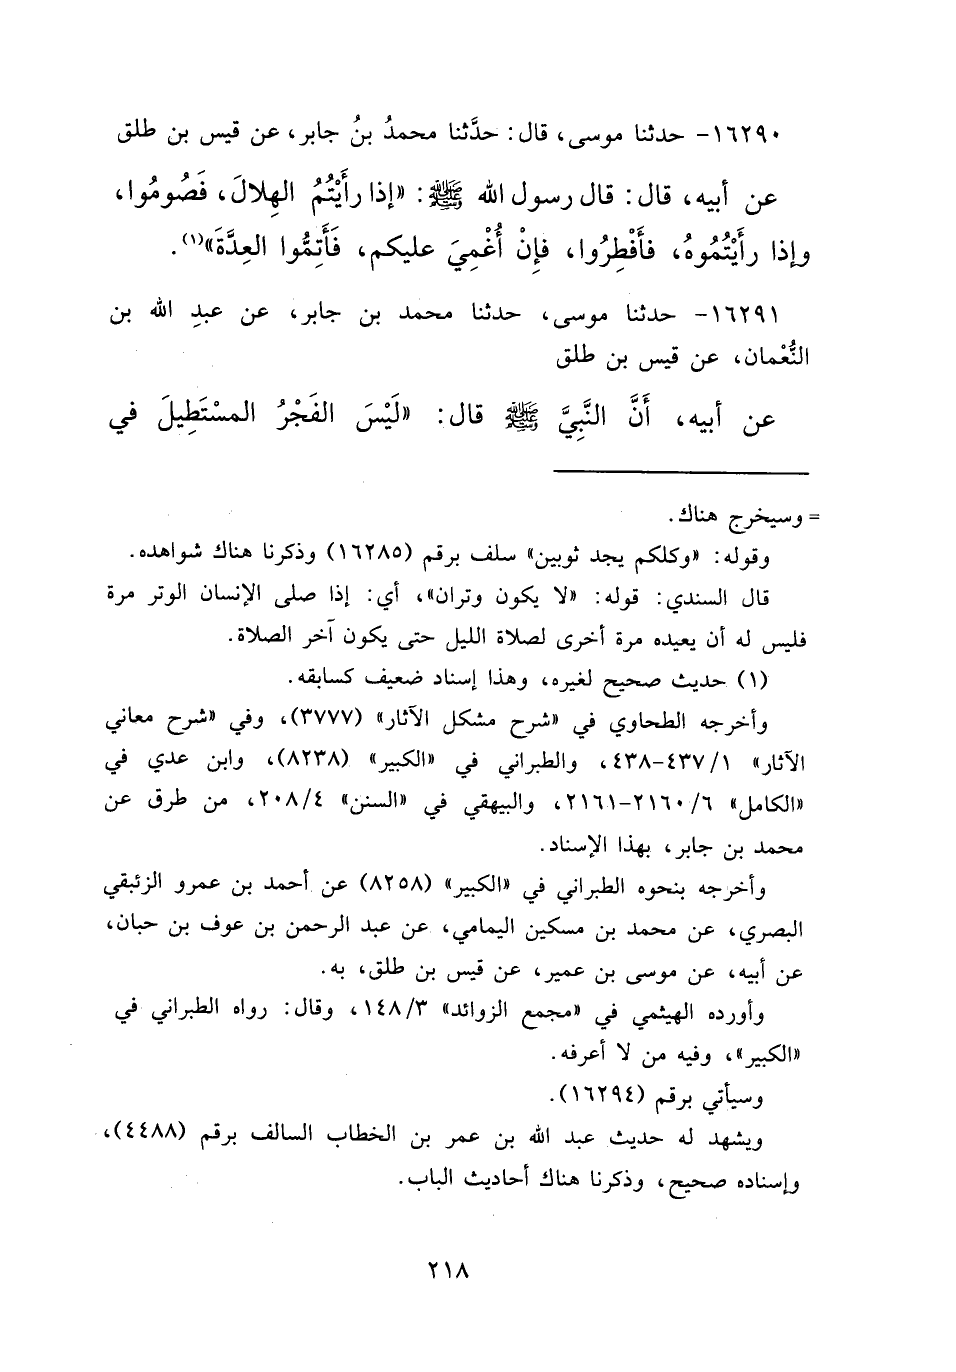 ١٦٢٩٠- حدثنا موسى، قال: حدَّثنا محمدُ بنُ جابر، عن قيس بن طلق
عن أبيه، قال: قال رسول الله ﷺ: «إذا رأَيْتُمُ الهِلالَ، فَصُومُوا،
وإذا رأَيْتُمُوهُ، فأَفْطِرُوا، فإِنْ أُغْمِيَ عليكم، فَأَتِمُّوا العِدَّةَ»(١).
١٦٢٩١- حدثنا موسى، حدثنا محمد بن جابر، عن عبدِ الله بن
النُّعْمان، عن قيس بن طلق
عن أبيه، أَنَّ النَّبِيَّ ﷺ قال: «لَيْسَ الفَجْرُ المسْتَطِيلَ في
= وسيخرج هناك.
وقوله: «وكلكم يجد ثوبين» سلف برقم (١٦٢٨٥) وذكرنا هناك شواهده.
قال السندي: قوله: «لا يكون وتران»، أي: إذا صلى الإنسان الوتر مرة
فليس له أن يعيده مرة أخرى لصلاة الليل حتى يكون آخر الصلاة.
(١) حديث صحيح لغيره، وهذا إسناد ضعيف كسابقه.
وأخرجه الطحاوي في «شرح مشكل الآثار» (٣٧٧٧)، وفي «شرح معاني
الآثار» ٤٣٧/١-٤٣٨، والطبراني في «الكبير» (٨٢٣٨)، وابن عدي في
«الكامل» ٢١٦٠/٦-٢١٦١، والبيهقي في «السنن» ٢٠٨/٤، من طرق عن
محمد بن جابر، بهذا الإسناد.
وأخرجه بنحوه الطبراني في «الكبير» (٨٢٥٨) عن أحمد بن عمرو الزئبقي
البصري، عن محمد بن مسكين اليمامي، عن عبد الرحمن بن عوف بن حبان،
عن أبيه، عن موسى بن عمير، عن قيس بن طلق، به.
وأورده الهيثمي في «مجمع الزوائد» ١٤٨/٣، وقال: رواه الطبراني في
«الكبير»، وفيه من لا أعرفه.
وسيأتي برقم (١٦٢٩٤).
ويشهد له حديث عبد الله بن عمر بن الخطاب السالف برقم (٤٤٨٨)،
وإسناده صحيح، وذكرنا هناك أحاديث الباب.
٢١٨